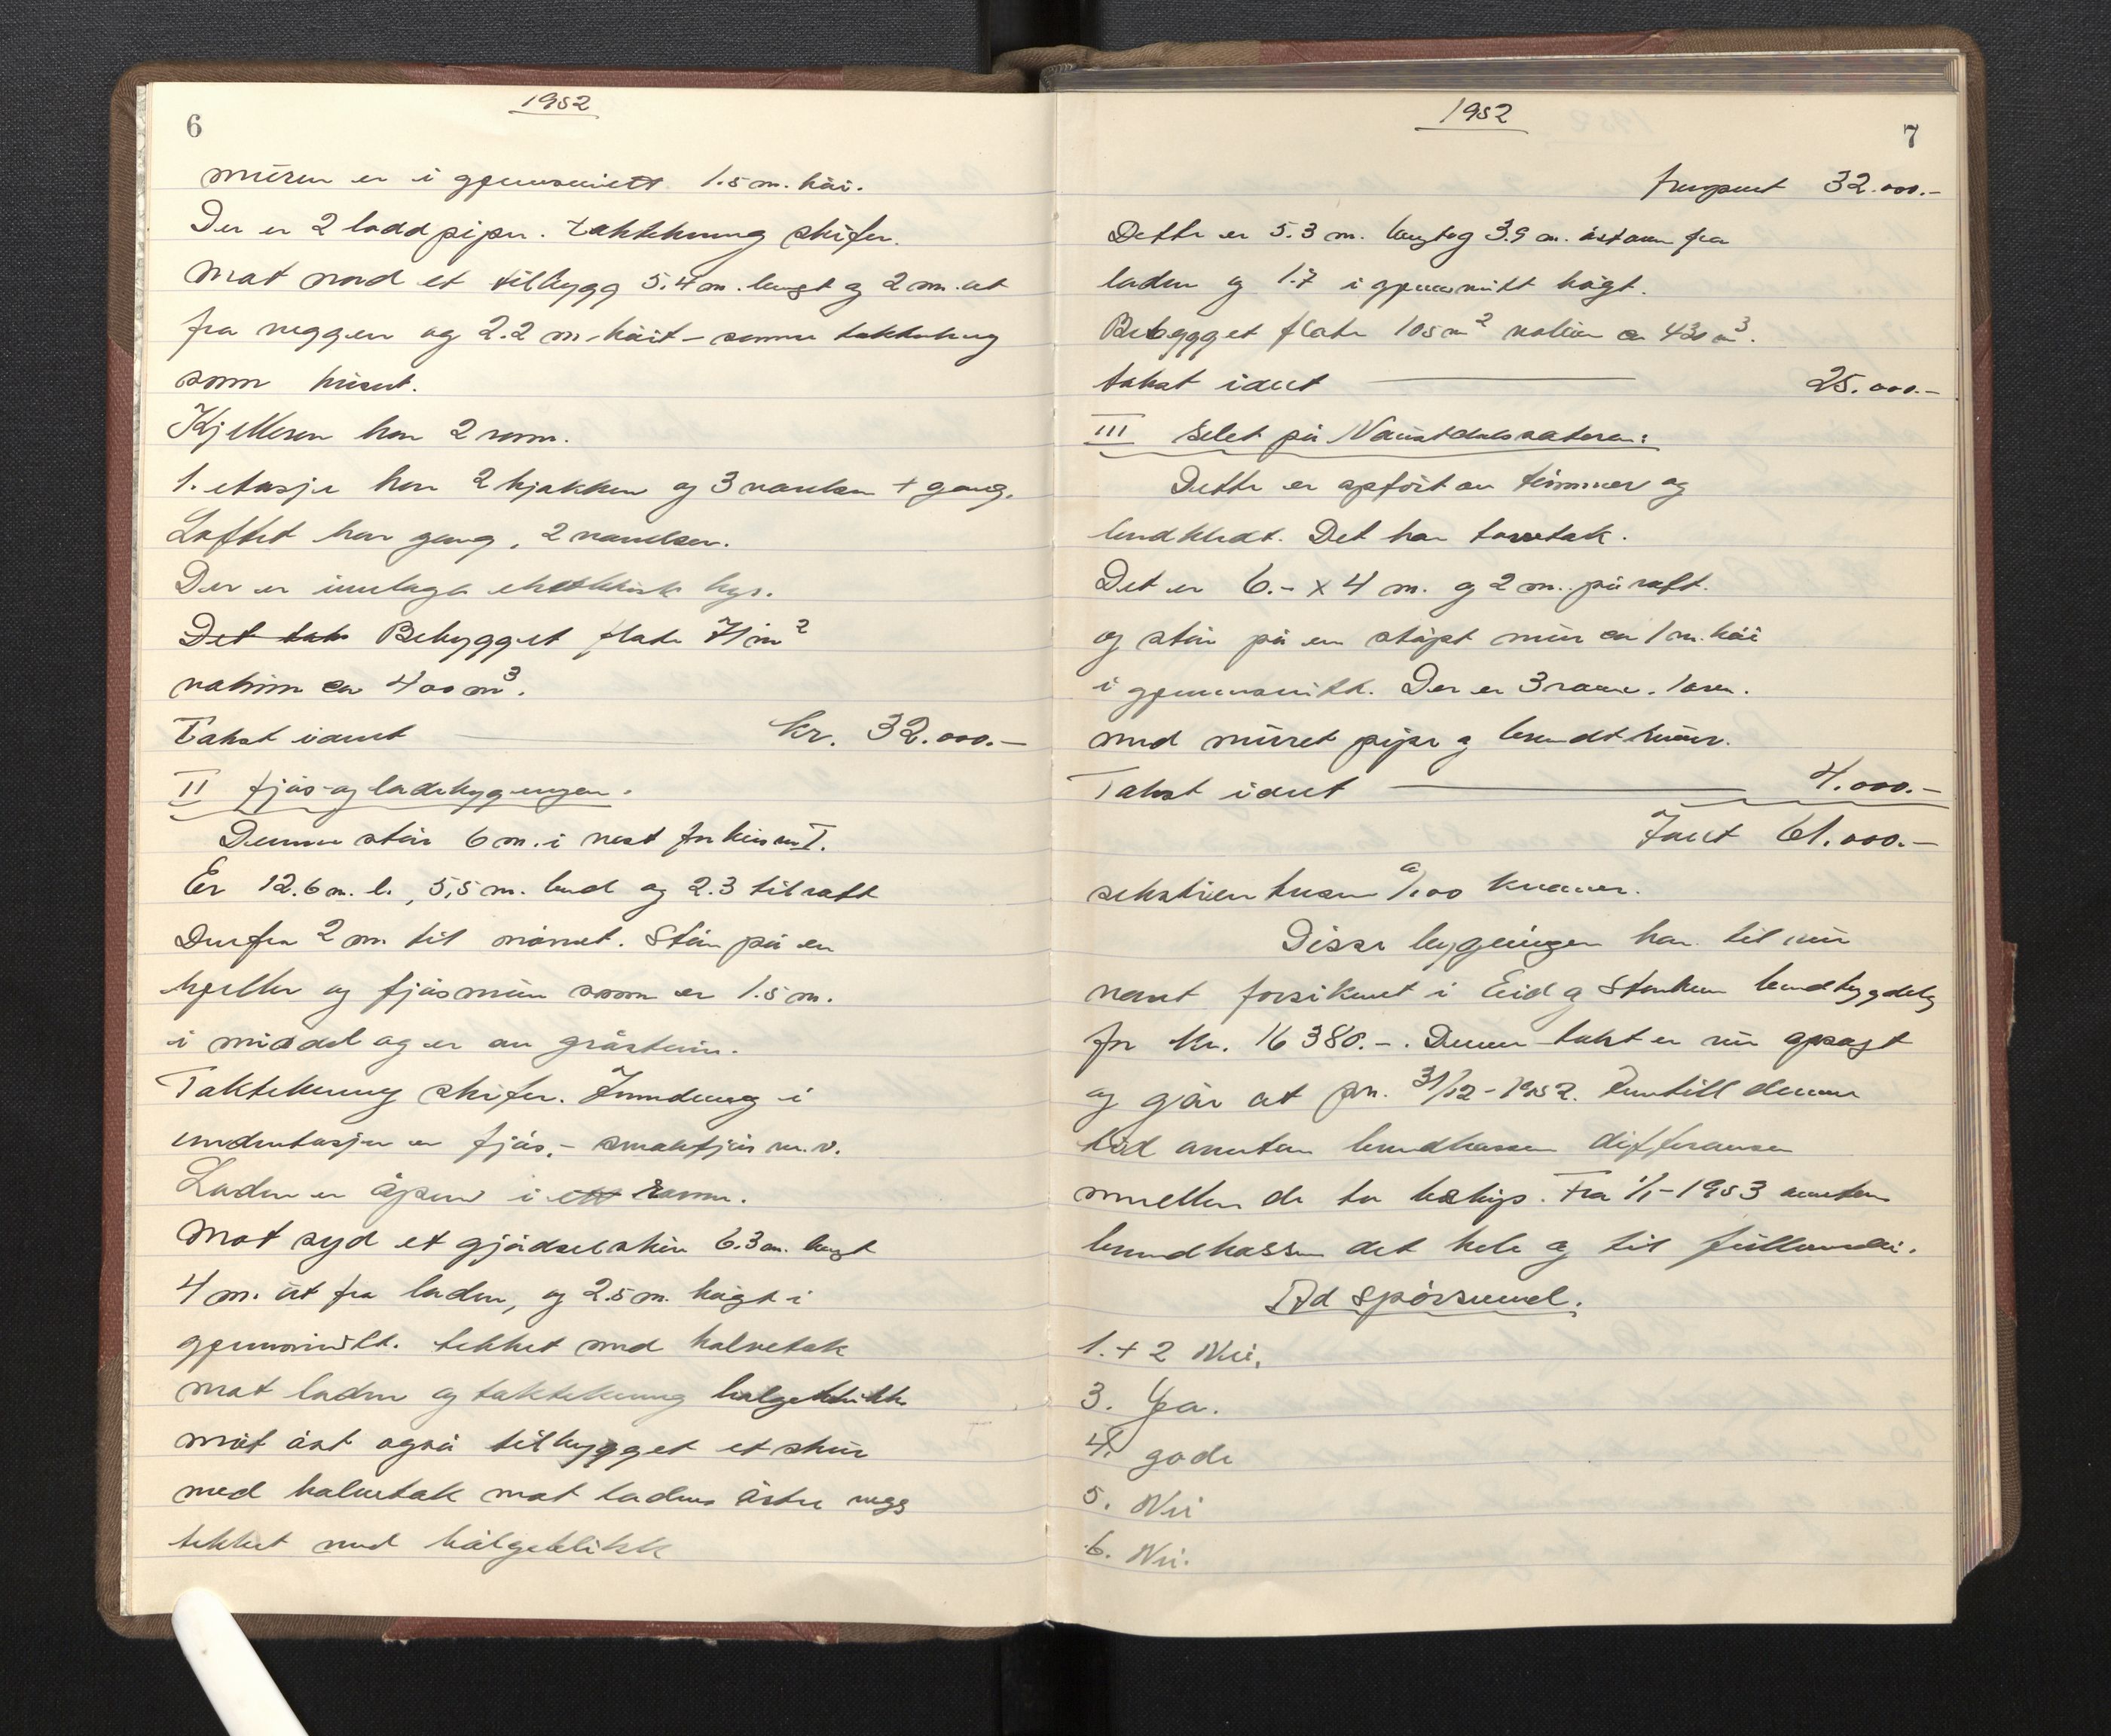 1952
6
muren er i gjennomsnitt 1.5 m. høi.
Der er 2 lodd piper. Taktekning skifer.
Mot nord et tilbygg 5.4 m. langt og 2 m. ut
fra veggen og 2.2 m. høit - samme taktekning
som huset.
Kjelleren har 2 rom.
1. etasje har 2 kjøkken og 3 værelser + gang.
Loftet har gang, 2 værelser.
Der er innlagt elektrisk lys.
Det tak Bebygget flate 71 m²
volum ca 400 m³.
Takst idnet kr. 32.000.-
II fjøs- og ladebygningen.
Denne står 6 m. i vest for hus nr I.
Er 12.6 m. l., 5,5 m. bred og 2.3 til raft
Derfra 2 m. til mønet. Står på en
kjeller og fjøsmur som er 1.5 m.
i middel og er av gråstein.
Taktekning skifer. Inndeling i
underetasjen er fjøs,- småfjøs m.v.
Laden er åpen i ett rom.
Mot syd et gjødselskur 6.3 m. langt
4 m. ut fra laden, og 2.5 m. høgt i
gjennomsnitt. tekket med halvtak
mot laden og taktekning bølgeblikk
mot øst også tilbygget et skur
med halvtak mot ladens østre vegg
tekket med bølgeblikk
1952
7
32.000.-
Dette er 5.3 m. langt og 3.9 m. ut fra
laden og 1.7 i gjennomsnitt høgt.
Bebygget flate 105 m² volum ca 430 m³.
takst idnet 25.000.-
III Selet på Naustdalssetern:
Dette er opført av tømmer og
bordkledt. Det har torvtak.
Det er 6.- x 4 m. og 2 m. på raft.
og står på en støpt mur ca 1 m. høi
i gjennomsnitt. Der er 3 rom. 1 ovn.
med muret pipe og brandtmur.
Takst idnet 4.000.-
Innt 61.000.-
sekstien tusen 0/100 kroner.
Disse bygninger har til nu
vært forsikret i Eid og Stårheim brandbygdelag
for kr. 16 380.-. Denne takst er nu opsagt
og går ut pr. 31/12-1952. Inntill denne
tid overtar brandkassen differansen
mellem de to beløp. Fra 1/1-1953 overtar
brandkassen det hele og til fullverdi.
Ad Spørsmål.
1. + 2 Nei.
3. Ja.
4. gode
5. Nei
6. Nei.